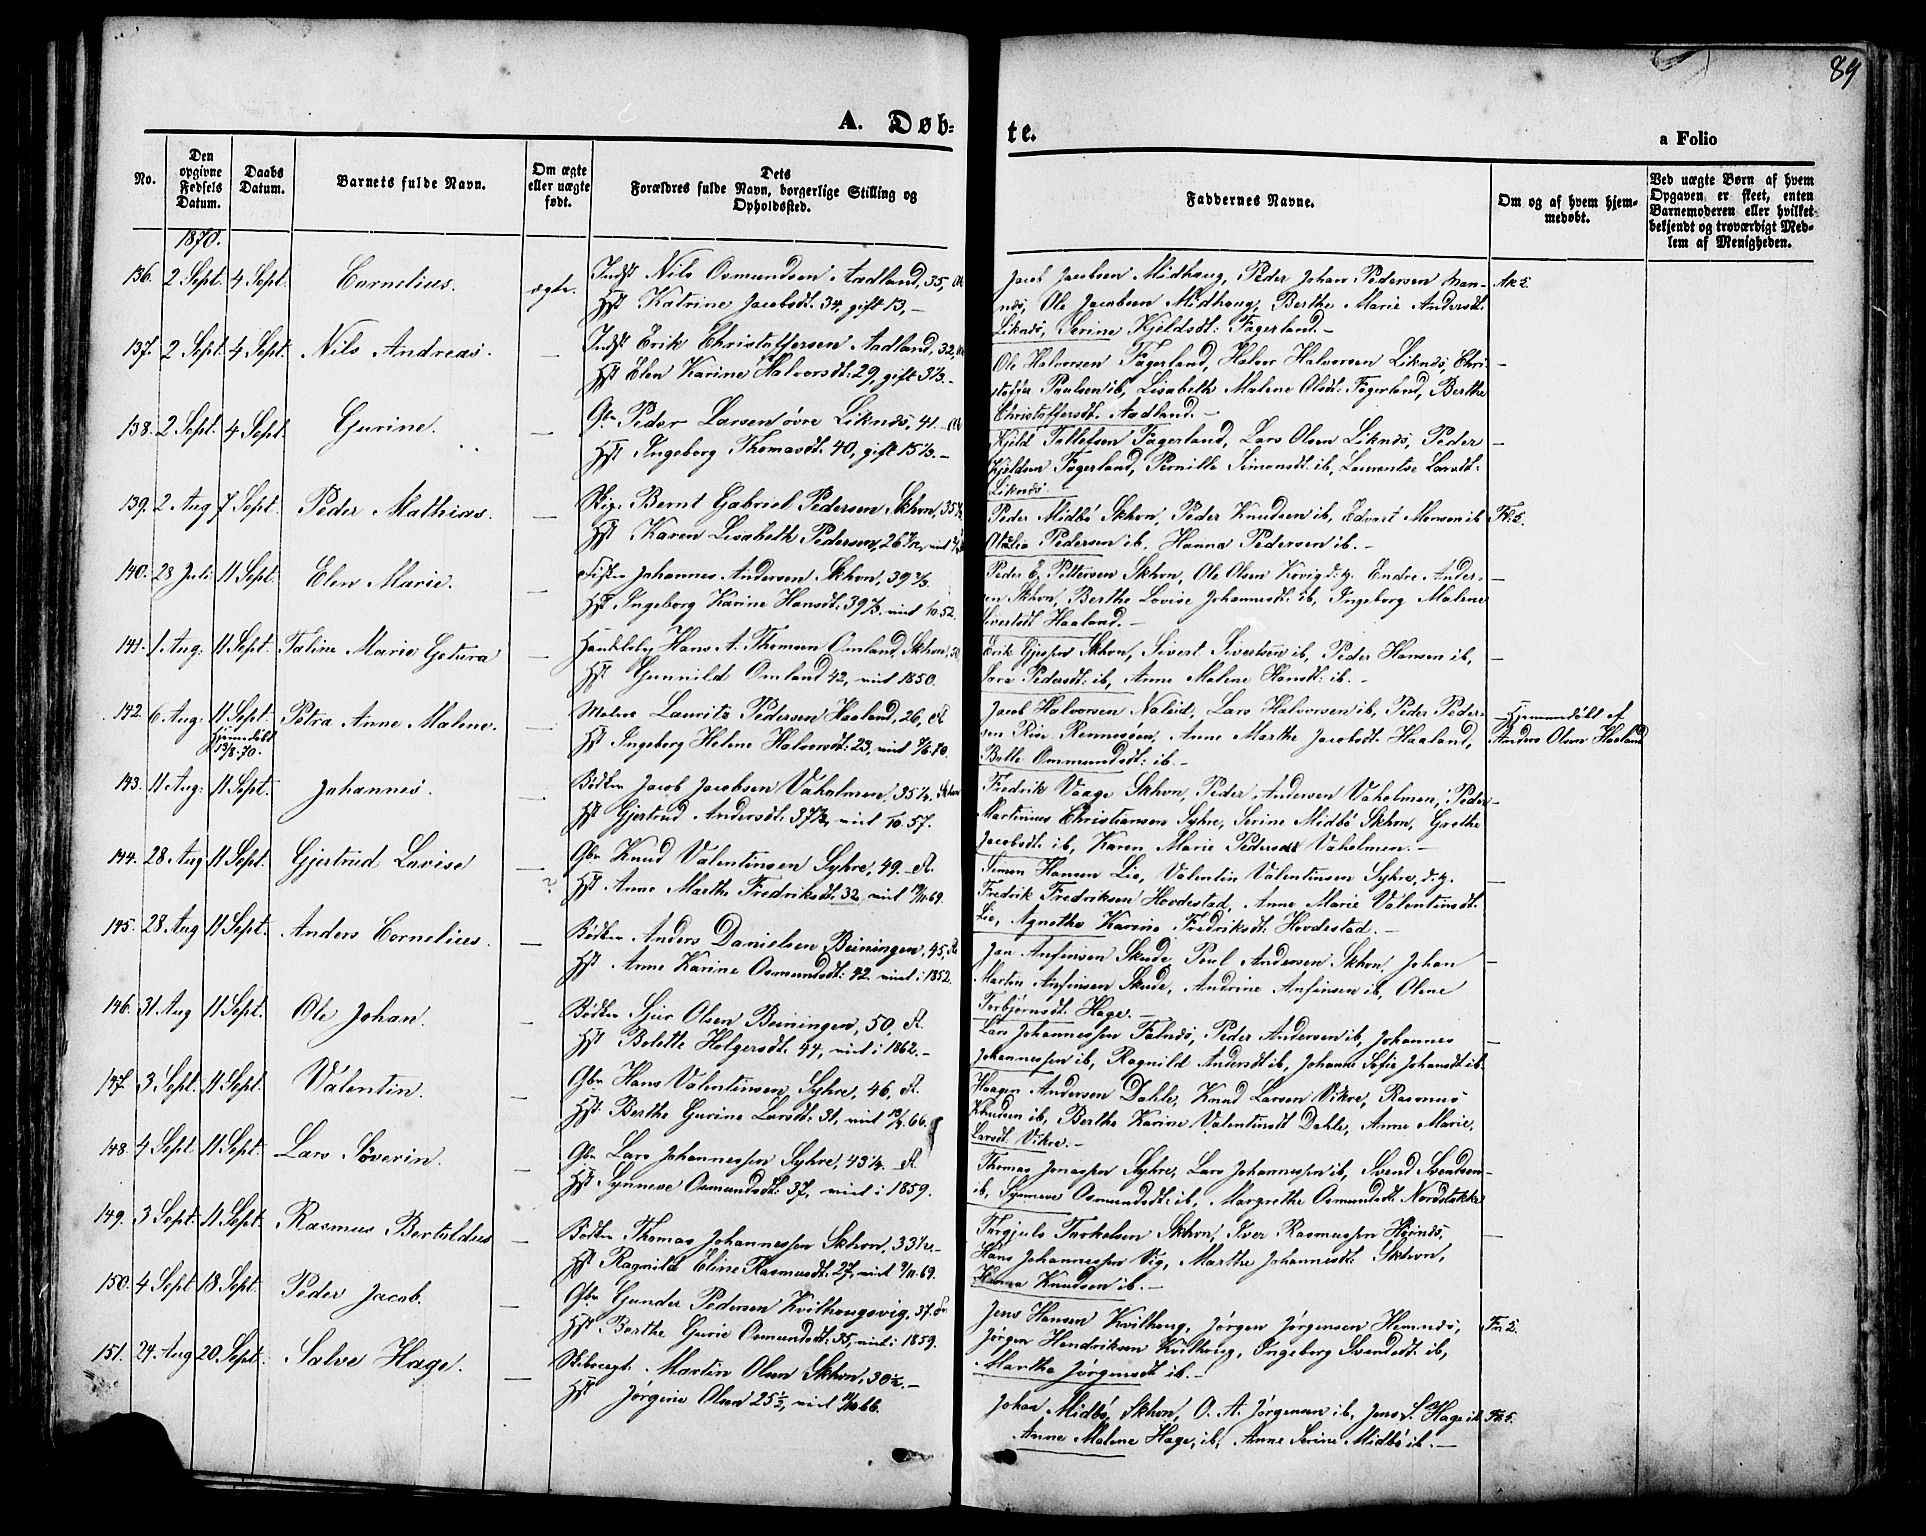 89
A. Døb-
te.
a Folio
No.
Den opgivne Fødsels Datum.
Daabs Datum.
Barnets fulde Navn.
Om ægte eller uægte født.
Dets Forældres fulde Navn, borgerlige Stilling og Opholdssted.
Faddernes Navne.
Om og af hvem hjemmedøbt.
Ved uægte Børn af hvem Opgaven er skeet, enten Barnemoderen eller hvilket bekjendt og troværdigt Medlem af Menigheden.
1870.
136. 2 Sept. 4 Sept. Cornelius. ægte. Indst Nils Osmundsen Aadland, 35,
Hst Katrine Jacobsdt: 34, gift 13,-
Jacob Jacobsen Midhaug, Peder Johan Pedersen
Ole Jacobsen Midhaug, Berthe Marie Andersdt:
Liknæs, Serine Kjeldsdt: Fagerland.-
137. 2 Sept. 4 Sept. Nils Andreas. — Indst Erik Christoffersen Aadland, 32,
Hst Elen Karine Halvorsdt: 29, gift 3⅓.-
Ole Halvorsen Fagerland, Halvor Halvorsen Liknæs, Chri-
stoffer Paulsen ib, Lisabeth Malene Olsdt: Fagerland, Berthe
Christoffersdt. Aadland.-
138. 2 Sept. 4 Sept. Gurine. — Gbr Peder Larsen øvre Liknæs, 41.-
Hst Ingeborg Thomasdt. 40, gift 15⅓.-
Kjeld Tollefsen Fagerland, Lars Olsen Liknæs, Peder
Kjeldsen Fagerland, Pernille Simonsdt: ib, Laurentse Larsdt:
Liknæs.
139. 2 Aug 7 Sept. Peder Mathias. — Bernt Gabriel Pedersen Skhvn, 35½
Hst Karen Lisabeth Pedersen, 26½,
Peder Midbö Skhvn, Peder Knudsen ib, Edvart Monsen ib
Pedersen ib, Hanna Pedersen ib.-
140. 23 Juli 11 Sept. Elen Marie. — Fisker Johannes Andersen Skhvn, 39⅔.
Hst Ingeborg Karine Hansdt: 39⅓, viet 52.
Peder E. Pettersen Skhvn, Ole Olsen Endre Ander-
sen Skhvn, Berthe Lovise Johannesdt: ib, Ingeborg Malene
Sivertsdt Haaland.-
141. 1 Aug: 11 Sept. Taline Marie Getura — Handelsbg Hans A. Thomsen Omland, Skhvn,
Hst Gunnild Omland 42, viet 1850.
Erik Skhvn, Sivert Sivertsen ib, Peder Hansen ib,
Sara Pedersdt: ib, Anne Malene Hansdt: ib.-
142. 6 Aug: 11 Sept. Petra Anne Malene. — Maler Lauritz Pedersen Haaland, 26, A
Hjemmedöbt 13/8.70.
Hst Ingeborg Helene Halvorsdt: 23, viet
Jacob Halvorsen Lars Halvorsen ib, Peder Peder-
sen Rennesöen, Anne Marthe Jacobsdt: Haaland,
Ommundsdt: ib.-
Hjemmedöbt af
Anders Olsen Haaland
143. 11 Aug: 11 Sept. Johannes. — Bödker Jacob Jacobsen Vaholmen, 35¼,
Hst Gjertrud Andersdt: 37½, viet 57.
Fredrik Vaage Skhvn, Peder Andersen Vaholmen, Peder
Martinius Christiansen Syhre, Serine Midbö Skhvn, Grethe
Jacobsdt: ib, Karen Marie Pedersdt Vaholmen.-
144. 28 Aug 11 Sept. Gjertrud Lovise — Gbr Knud Valentinsen Syhre, 49.- A.
Hst Anne Marthe Fredriksdt: 32, viet 69.
Simon Hansen Lie, Valentin Valentinsen Syhre, d.y.
Fredrik Fredriksen Hovdestad, Anne Marie Valentinsdt:
Lie, Agnethe Karine Fredriksdt: Hovdestad.-
145. 28 Aug 11 Sept. Anders Cornelius. — Bödker Anders Danielsen Beiningen, 45, A
Hst Anne Karine Osmundsdt: 42, viet i 1852.
Jan Anfinsen Skude, Poul Andersen Skhvn, Johan
Martin Anfinsen Skude, Andrine Anfinsen ib, Olene
Torbjörnsdt. Hage.-
146. 31 Aug 11 Sept. Ole Johan. — Bödker Sjur Olsen Beiningen, 50, A.
Hst Bolette Holgersdt: 44, viet i 1862.-
Lars Johannessen Falnæs, Peder Andersen ib, Johannes
Johannessen ib, Ragnild Andersdt ib, Johanne Sofie Johansdt ib.
147. 3 Sept. 11 Sept. Valentin. — Gbr Hans Valentinsen Syhre, 46, A.
Hst: Berthe Gurine Larsdt: 31, viet 66.
Haagen Andersen Dahle, Knud Larsen Vikre, Rasmus
Knudsen ib, Berthe Karine Valentinsdt Dahle, Anne Marie
Larsdt. Vikre.-
148. 4 Sept. 11 Sept. Lars Söverin. — Gbr Lars Johannessen Syhre, 43½, A.
Hst Synneve Osmundsdt: 37, viet i 1859.
Thomas Jonassen Syhre, Lars Johannessen ib, Svend Svendsen
ib, Synneve Osmundsdt: ib, Margrethe Osmundsdt. Nordstokke
149. 3 Sept. 11 Sept. Rasmus Bertoldus — Bödker Thomas Johannessen Skhvn, 33½.-
Hst Ragnild Eline Rasmusdt: 27, viet 69.
Torgjuls Torkelsen Skhvn, Iver Rasmussen
Hans Johannessen Vig, Marthe Johannesdt: Skhvn,
Hanna Knudsen ib.-
150. 4 Sept 18 Sept. Peder Jacob. — Gbr Gunder Pedersen Kvilhougsvig, 37.
Hst. Berthe Gurie Osmundsdt: 35, viet i 1859.
Jens Hansen Kvilhoug, Jörgen Jörgensen Hemnæs,
Jörgen Hendriksen Kvilhoug, Ingeborg Svendsdt ib,
Marthe Jörgensdt ib.-
151. 24 Aug 20 Sept. Salve Hage. — Martin Olsen Skhvn, 30½.-
Hst Jörgine Olsen 25½, viet 66.
Johan Midbö, Skhvn, O. A. Jörgensen ib, Jens S. Hage ib
Anne Malene Hage, ib, Anne Serine Midbö ib.-